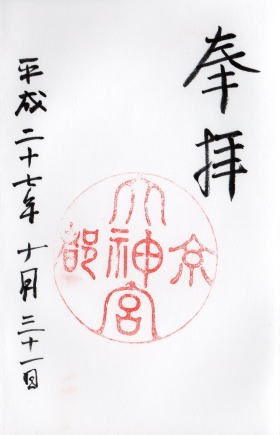 奉拝
京都大神宮
平成二十七年十月三十一日